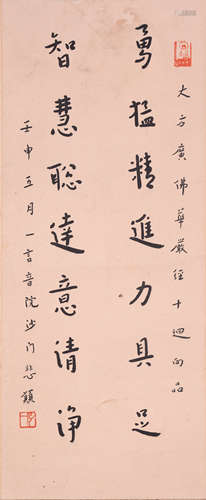 大方廣佛華嚴經十迴向品
勇猛精進力具足
智慧聡達意清淨
壬申五月一言音院沙門悲願